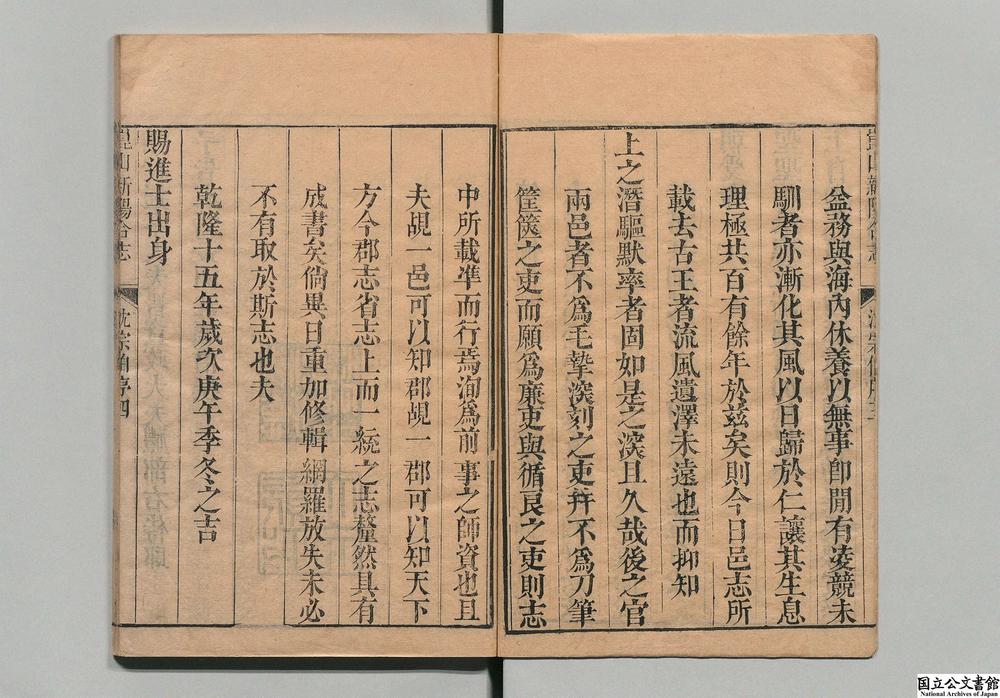 益務與海內休養以無事卽閒有凌競未
馴者亦漸化其風以日歸於仁讓其生息
理極共百有餘年於茲矣則今日邑志所
載去古王者流風遺澤未遠也而抑知
上之潛驅默率者固如是之深且久哉後之官
兩邑者不爲毛摯深刻之吏幷不爲刀筆
筐篋之吏而願爲廉吏與循良之吏則志
中所載準而行焉洵爲前事之師資也且
夫覘一邑可以知郡覘一郡可以知天下
方今郡志省志上而一統之志釐然具有
成書矣倘異日重加修輯網羅放失未必
不有取於斯志也夫
乾隆十五年歲次庚午季冬之吉
賜進士出身
崑山新陽合志
沈宗伯序四
国立公文書館
National Archives of Japan